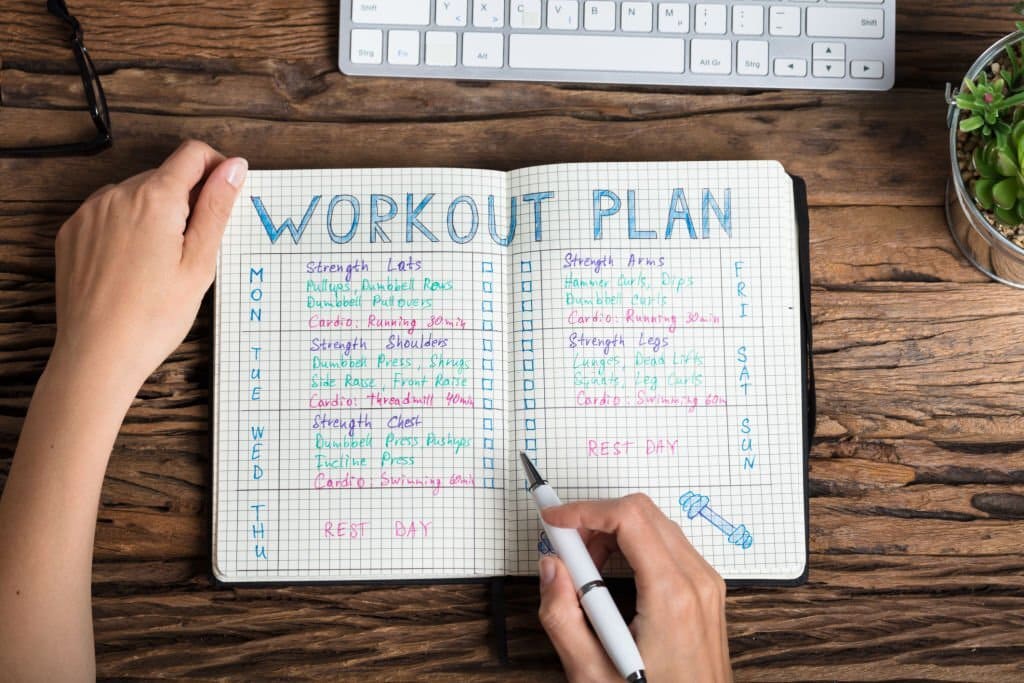 Shift
Y
X
C
V
B
N
M
;
:
-
Shift
Strg
Fn
Alt
Alt Gr
Strg
WORKOUT PLAN
MON
Strength Lats
Pullups, Dumbbell Rows
Dumbbell Pullovers
Cardio: Running 30min
TUE
Strength Shoulders
Dumbbell Press, Shrugs
Side Raise, Front Raise
Cardio: Threadmill 40min
WED
Strength Chest
Dumbbell Press Pushups
Incline Press
Cardio: Swimming 60min
THU
REST DAY
FRI
Strength Arms
Hammer Curls, Dips
Dumbbell Curls
Cardio: Running 30min
SAT
Strength Legs
Lunges, Dead Lifts
Squats, Leg Curls
Cardio: Swimming 60m
SUN
REST DAY